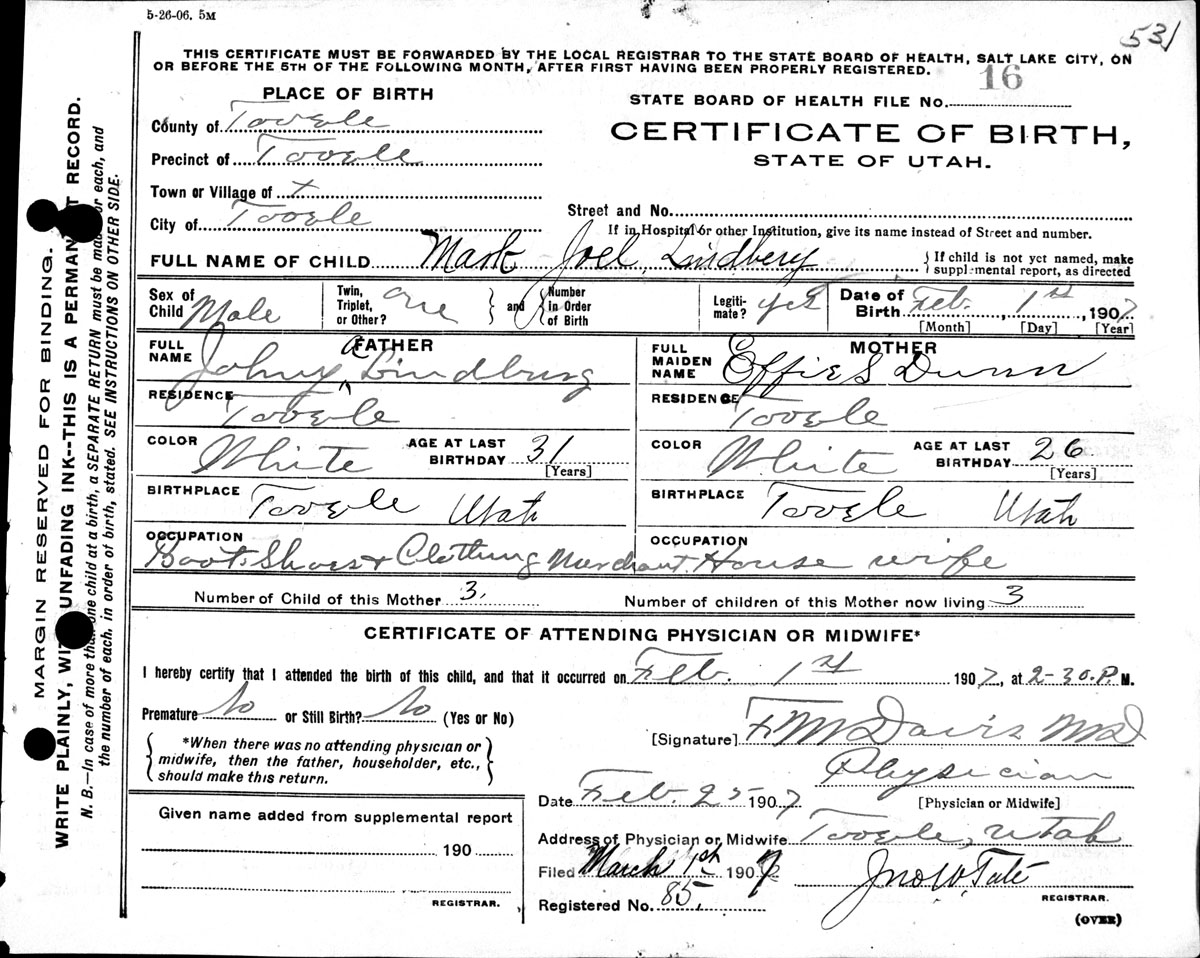 5-26-06. 5M
531
THIS CERTIFICATE MUST BE FORWARDED BY THE LOCAL REGISTRAR TO THE STATE BOARD OF HEALTH, SALT LAKE CITY, ON
OR BEFORE THE 5TH OF THE FOLLOWING MONTH, AFTER FIRST HAVING BEEN PROPERLY REGISTERED.
PLACE OF BIRTH
STATE BOARD OF HEALTH FILE NO. 16
County of Tooele
CERTIFICATE OF BIRTH,
Precinct of Tooele
STATE OF UTAH.
Town or Village of x
City of Tooele
Street and No.
If in Hospital or other Institution, give its name instead of Street and number.
FULL NAME OF CHILD Mark Joel Lindberg
{If child is not yet named, make
supplemental report, as directed
Sex of Child Male
Twin, Triplet, or Other? One } and { Number in Order of Birth
Legitimate? yes
Date of Birth Feb. 1st, 1907
[Month] [Day] [Year]
FATHER
FULL NAME Johny A Lindburg
RESIDENCE Tooele
COLOR White
AGE AT LAST BIRTHDAY 31
[Years]
BIRTHPLACE Tooele Utah
OCCUPATION Boots Shoes & Clothing Merchant.
MOTHER
FULL MAIDEN NAME Effie S Dunn
RESIDENCE Tooele
COLOR White
AGE AT LAST BIRTHDAY 26
[Years]
BIRTHPLACE Tooele Utah
OCCUPATION House wife
Number of Child of this Mother 3.
Number of children of this Mother now living 3
CERTIFICATE OF ATTENDING PHYSICIAN OR MIDWIFE*
I hereby certify that I attended the birth of this child, and that it occurred on Feb. 1st 1907, at 2-30.P. M.
Premature No or Still Birth? No (Yes or No)
{*When there was no attending physician or
midwife, then the father, householder, etc.,
should make this return.}
[Signature] F M Davis MD
Physician
[Physician or Midwife]
Date Feb. 25 1907
Address of Physician or Midwife Tooele, Utah
Filed March 1st 1907
Jno W. Tate
REGISTRAR.
Registered No. 85.
(OVER)
Given name added from supplemental report
190
REGISTRAR.
MARGIN RESERVED FOR BINDING.
WRITE PLAINLY, WITH UNFADING INK--THIS IS A PERMANENT RECORD.
N. B.—In case of more than one child at a birth, a SEPARATE RETURN must be made for each, and
the number of each, in order of birth, stated. SEE INSTRUCTIONS ON OTHER SIDE.